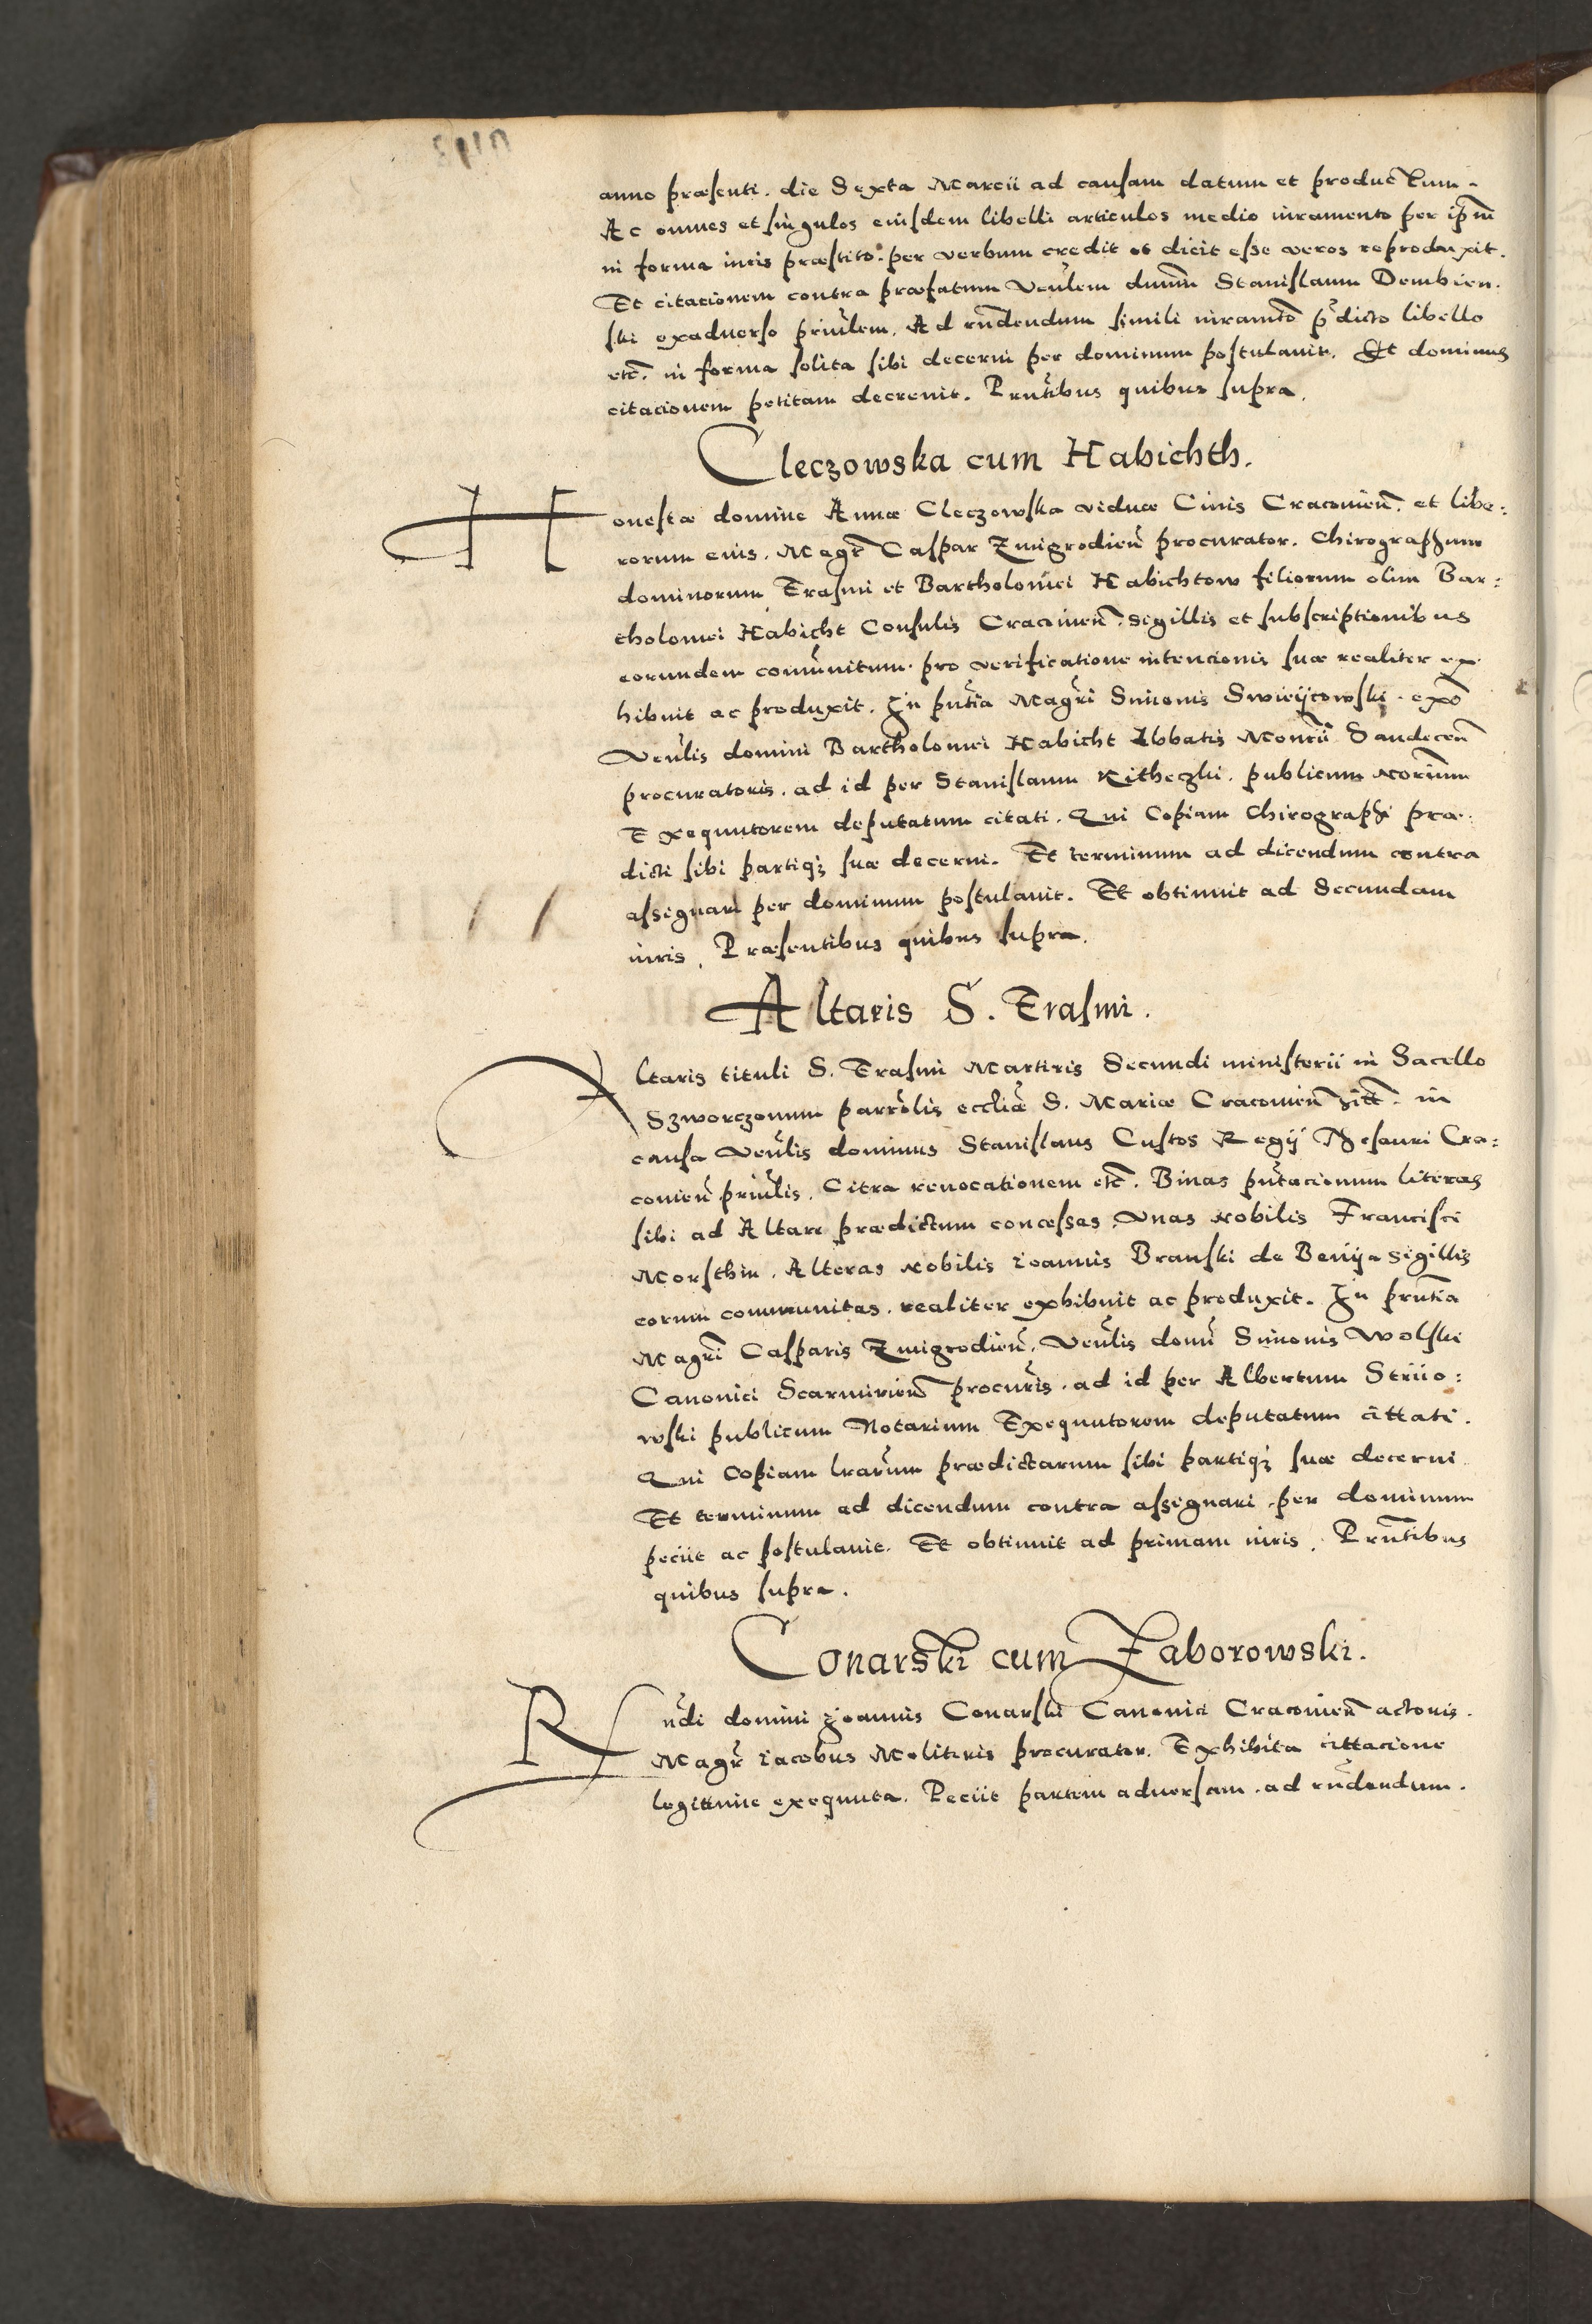 anno præsenti. die Sexta Marcii ad causam datum et productum.
Ac omnes et singulos eiusdem libelli articulos medio iuramento per ip̄m
in forma iuris præstito. per verbum credit et dicit esse veros reproduxit.
Et citacionem contra præfatum Veñlem dnum Stanislaum Dembien.
ski exaduerso prinlem. Ad rñdendum simili iuramto p̄dicto libello
etc. in forma solita sibi decerni per dominum postulauit. Et dominus
citacionem petitam decreuit. Prntibus quibus supra.
Cleczowska cum Habichth.
Honestæ domine Annæ Cleczowska viduæ Ciuis Cracouien̄. et libe:
rorum eius. Magr̄ Caspar Zmigrodien̄ procurator. Chirographum
dominorum Erasmi et Bartholomei Habichtow filiorum olim Bar:
tholomei Habicht Consulis Cracouien̄. sigillis et subscriptionibus
eorundem comunitum. pro verificatione intencionis suæ realiter ex
hibuit ac produxit. In pñtia Magr̄i Simonis Swieÿcowski. exõ
Veñlis domini Bartholomei Habicht Abbatis Moncii Sandecen̄
procuratoris. ad id per Stanislaum Kitheczki. publicum Norium
Exequutorem deputatum citati. Qui Copiam Chirographi præ.
dicti sibi partiq3 suæ decerni. Et terminum ad dicendum contra
assegnari per dominum postulauit. Et obtinuit ad Secundam
iuris. Præsentibus quibus supra.
Altaris S. Erasmi.
Altaris tituli S. Erasmi Martiris Secundi ministerii in Sacello
Szworczonum parrolis eccliæ S. Mariæ Cracouien̄ in
causa Veñlis dominus Stanislaus Custos Regÿ Thesauri Cra:
couien̄ prinlis. Citra reuocationem etc. Binas pñtacionum literas
sibi ad Altare prædictum concessas. Vnas Nobilis Francisci
Morsthin. Alteras Nobilis Ioannis Branski de sigillis
eorum communitas. realiter exhibuit ac produxit. In prntia
Magr̄i Casparis Zmigrodien̄. Veñlis domi Simonis Wolski
Canonici Scarmirien̄ procuris. ad id per Albertum Striio:
wski publicum Notarium Exequutorem deputatum cittati.
Qui Copiam lrarum prædictarum sibi partiq3 suæ decerni.
Et terminum ad dicendum contra assegnari. per dominum
peciit ac postulauit. Et obtinuit ad primam iuris. Prntibus
quibus supra.
Conarski cum Zaborowski.
Rñdi domini Joannis Conarski Canonici Cracouien̄ actoris.
Magr̄ Iacobus Molitoris procurator. Exhibita cittacione
legittime exequuta. Peciit partem aduersam. ad rñdendum.